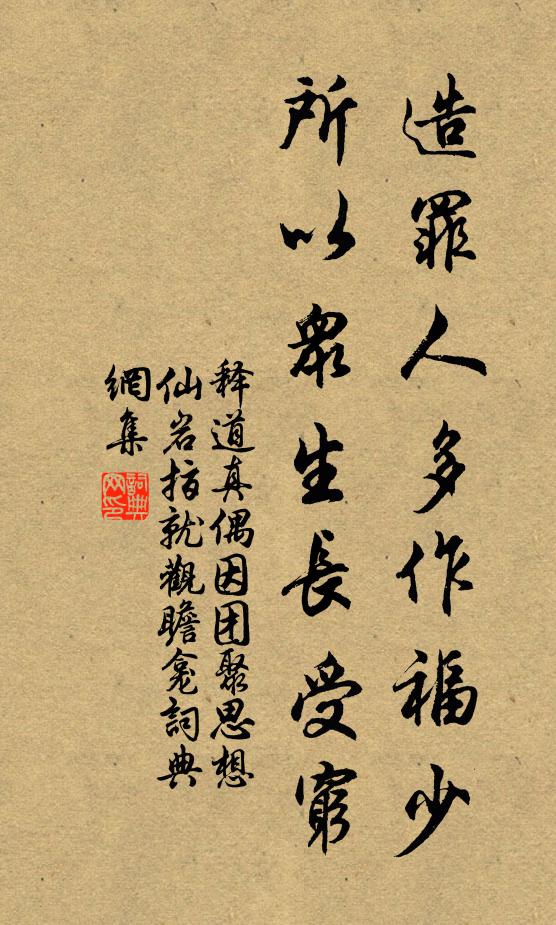 造罪人多作福少
所以眾生長受窮
释道真偶因团聚思想
仙岩指就觀瞻龛詞典
網集
詞典
网印